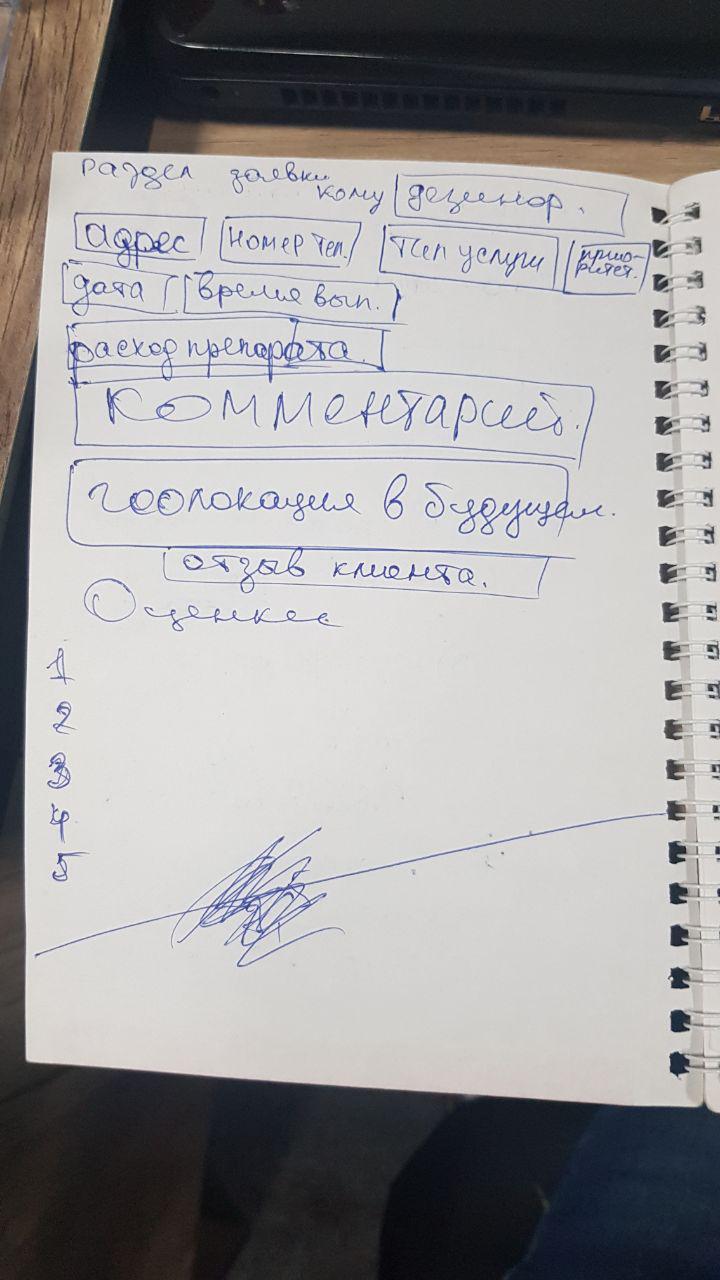 раздел заявки
кому дезинфор.
адрес номер тел. тип услуги приоритет.
дата время вып.
расход препарата.
комментарий.
геолокация в будущем.
отзыв клиента.
Оценка
1
2
3
4
5